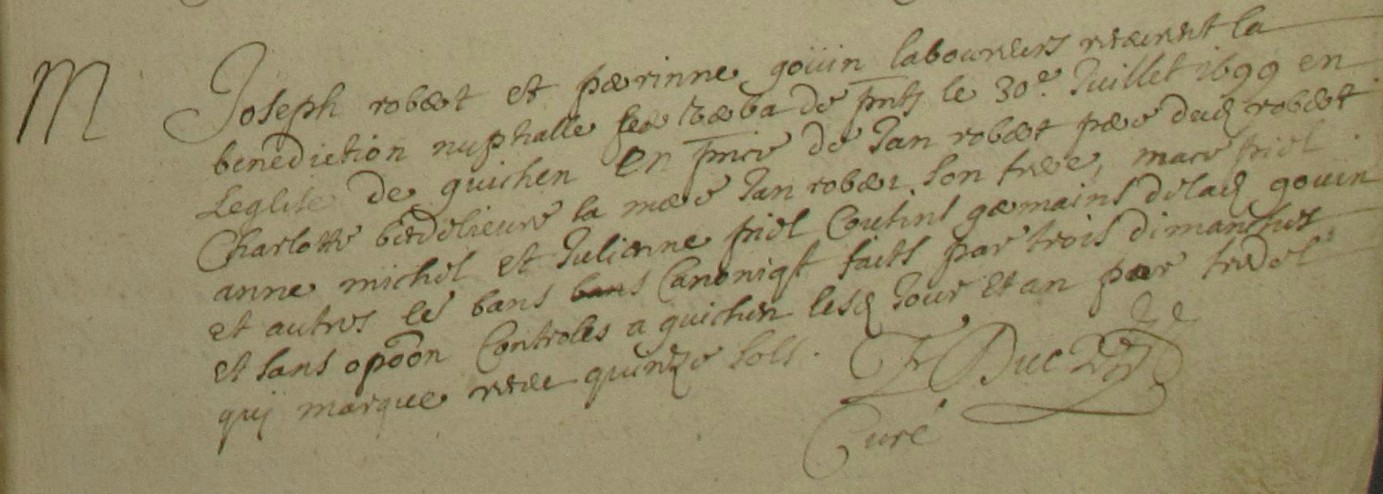 M
Joseph robert et perrinne gouin laboureurs receurent la
benediction nuptialle per verba de pnti le 30e Juillet 1699 en
Leglise de guichen en pnce de Jan robert pere dud robert
Charlotte la mere Jan robert son frere, marc piel
anne michel et Julienne piel Cousins germains de lad gouin
et autres les bans bans Canoniqt faits par trois dimanches
et sans opoon Controles a guichen lesd Jour et an par
quj marque receu quinze sols. Duc
Curé